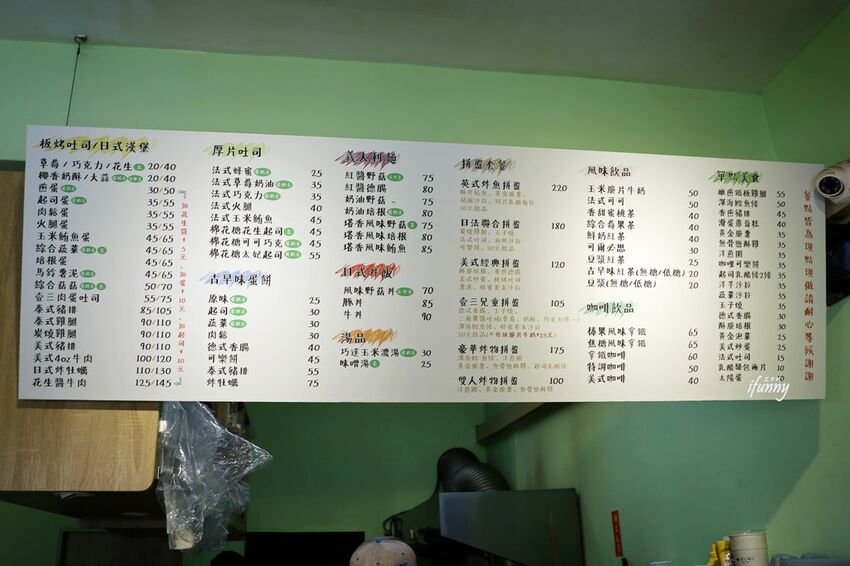 板烤吐司/日式漢堡
草莓/巧克力/花生 20/40
椰香奶酥/大蒜 20/40
煎蛋 30/50
起司蛋 35/55
肉鬆蛋 35/55
火腿蛋 35/55
玉米鮪魚蛋 45/65
綜合蔬菜 45/65
培根蛋 45/65
馬鈴薯泥 45/65
綜合菇菇 50/70
壹三肉蛋吐司 55/75
泰式豬排 85/105
泰式雞腿 90/110
炭燒雞腿 90/110
美式豬排 90/110
美式4oz牛肉 100/120
日式炸牡蠣 110/130
花生醬牛肉 125/145
加花生醬+5元
加蛋+10元
加起司+10元
厚片吐司
法式蜂蜜 25
法式草莓奶油 35
法式巧克力 35
法式火腿 40
法式玉米鮪魚
棉花糖花生起司
棉花糖可可巧克 45
棉花糖太妃起司
古早味蛋餅
原味 25
起司 30
蔬菜 30
肉鬆 30
德式香腸 40
可樂餅 45
泰式豬排 55
炸牡蠣 75
義大利麵
紅醬野菇 75
紅醬德腸 80
奶油野菇 75
奶油培根 80
塔香風味野菇 75
塔香風味培根 80
塔香風味鮪魚 85
日式丼飯
風味野菇丼 70
豚丼 85
牛丼 90
湯品
巧達玉米濃湯 30
味噌湯 25
拼盤套餐
英式炸魚拼盤 220
日法聯合拼盤 180
美式經典拼盤 120
壹三兒童拼盤 105
豪華炸物拼盤 175
雙人炸物拼盤 100
風味飲品
玉米脆片牛奶 50
法式可可 50
香甜蜜桃茶 40
綜合莓果茶 40
鮮奶紅茶 40
可爾必思 30
豆漿紅茶 25
古早味紅茶(無糖/低糖) 20
豆漿(無糖/低糖) 20
咖啡飲品
榛果風味拿鐵 65
焦糖風味拿鐵 65
拿鐵咖啡 60
特調咖啡 50
美式咖啡 40
單點美食
嫩煎鐵板雞腿 55
深海鱈魚條 50
香煎豬排 45
滑蛋蘿蔔糕 40
黃金脆薯 35
無骨鹽酥雞 35
洋蔥圈 35
咖哩可樂餅 35
起司乳酪條2條 35
洋芋沙拉 35
蔬菜沙拉 35
玉子燒 35
德式香腸 30
酥脆培根 30
黃金泡菜 25
美式炒蛋 25
法式吐司 15
乳酪麵包兩片 10
太陽蛋 10
餐點皆為現點現做請耐心等候謝謝
ifunny